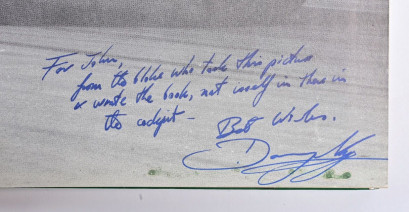 For John,
from the bloke who took this picture
or wrote the book, not itself in there in
the cockpit —
Best Wishes.